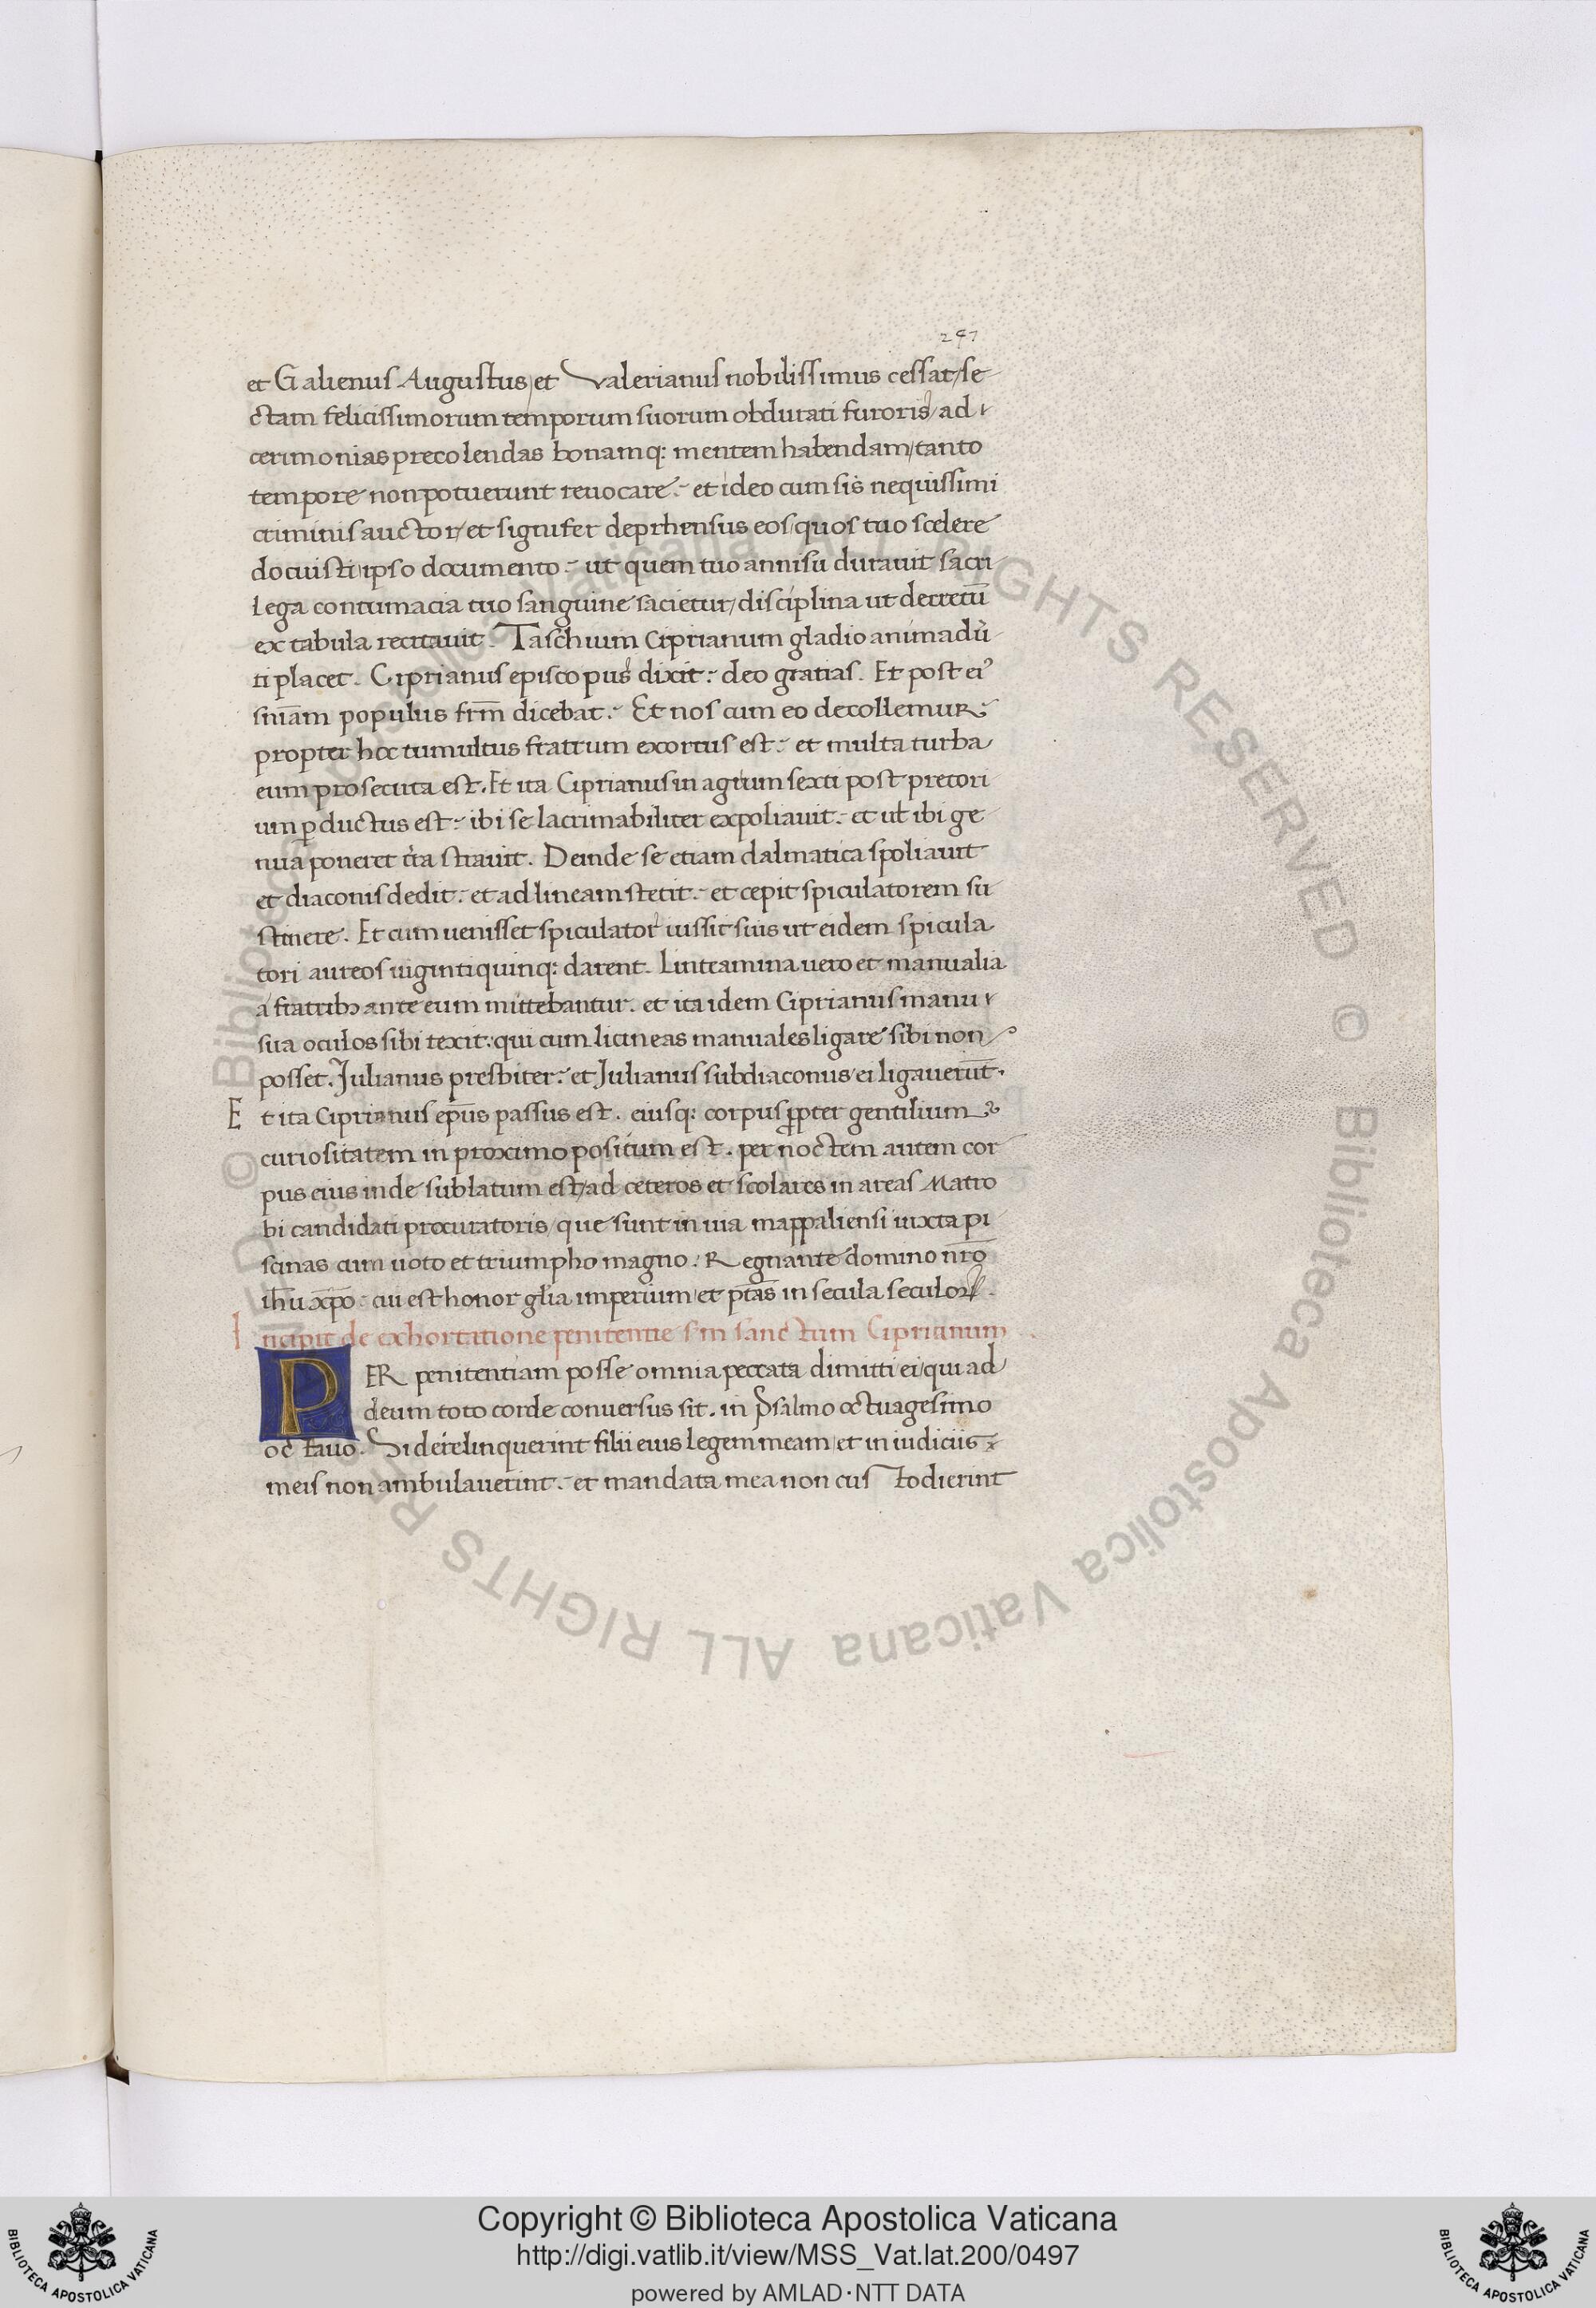 247
et Galienus Augustus / et Valerianus nobilissimus cessat / se
ctam felicissimorum temporum suorum obdurati furoris / ad
cerimonias precolendas bonamq: mentem habendam / tanto
tempore non potuerunt reuocare : et ideo cum sis nequissimi
criminis auctor / et signifer deprhensus eos / quos tuo scelere
docuisti ipso documento : ut quem tuo annisu durauit sacri
lega contumacia tuo sanguine sacietur / disciplina ut decretū
ex tabula recitauit . Taschium Ciprianum gladio animadu᷑
ti placet . Ciprianus episcopus dixit : deo gratias . Et post ei᾽
sniam̄ populus frm̄ dicebat : Et nos cum eo decollemur :
propter hoc tumultus fratrum exortus est : et multa turba
eum prosecuta est . Et ita Ciprianus in agrum sexti post pretori
um ꝑductus est : ibi se lacrimabiliter expoliauit : et ut ibi ge
nua poneret t̄ra strauit . Deinde se etiam dalmatica spoliauit
et diaconis dedit : et ad lineam stetit : et cepit spiculatorem su
stinere . Et cum uenisset spiculator iussit suis ut eidem spicula
tori aureos uigintiquinq: darent . Linteamina uero et manualia
a fratribꝫ ante eum mittebantur . et ita idem Ciprianus manu
sua oculos sibi texit : qui cum licineas manuales ligare sibi non
posset . Julianus presbiter : et Julianus subdiaconus / ei ligauerūt .
E t ita Ciprianus ep̄us passus est . eiusq: corpus ꝓpter gentilium
curiositatem in proximo positum est . per noctem autem cor
pus eius inde sublatum est / ad ceteros et scolares in areas Matro
bi candidati procuratoris / que sunt in uia mappaliensi iuxta pi
scinas cum uoto et triumpho magno . Regnante domino nr̄o
ih̄u xp̄o : cui est honor gl̄ia imperium / et ptas̄ in secula seculoꝝ .
Incipit de exhortatione penitentie s̄m sanctum Ciprianum
PER penitentiam posse omnia peccata dimitti ei / qui ad
deum toto corde conuersus sit . in Psalmo octuagesimo
octauo . Si derelinquerint filii eius legem meam / et in iudiciis
meis non ambulauerint : et mandata mea non custodierint
© Biblioteca Apostolica Vaticana ALL RIGHTS RESERVED © Biblioteca Apostolica Vaticana ALL RIGHTS RESERVED
Copyright © Biblioteca Apostolica Vaticana
http://digi.vatlib.it/view/MSS_Vat.lat.200/0497
powered by AMLAD·NTT DATA
BIBLIOTECA APOSTOLICA VATICANA
BIBLIOTECA APOSTOLICA VATICANA